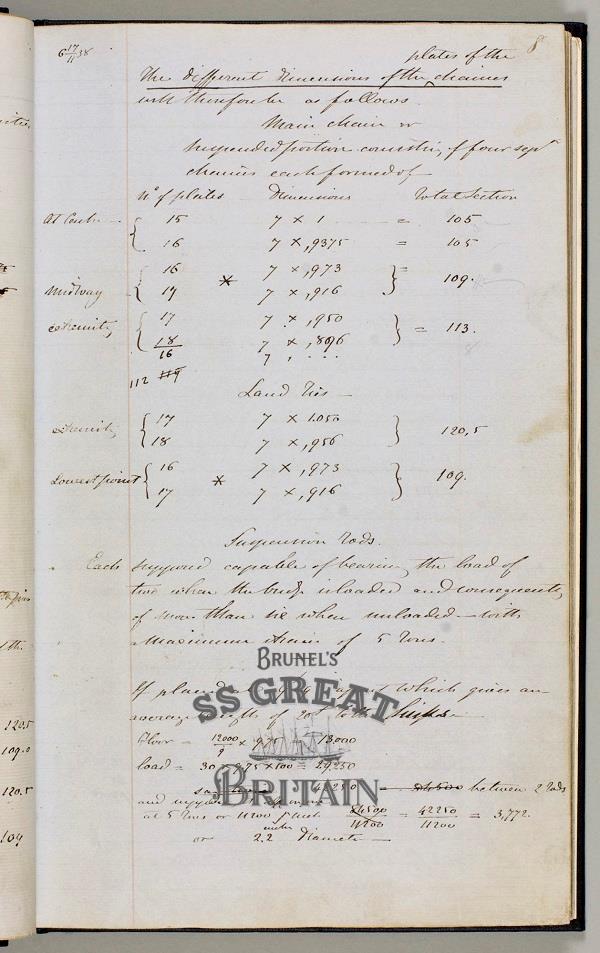 6 17/11 38
8
plates of the
The different Dimensions of the chaines
will therefore be as follows.
Main chain or
suspended portion consisting of four septe
chaines each formed of
No of plates Dimensions Total Section
At Centre 15 7 × 1 = 105
16 7 × ,9375 = 105
Midway 16 * 7 × ,973 = 109.
17 7 × ,916
extremity 17 7 × ,950 = 113.
18 7 × ,896
16 7
112 119
Land Ties
extremity 17 7 × 1.050 120,5
18 7 × ,956
Lowest point 16 * 7 × ,973 109.
17 7 × ,916
Suspension Rods.
Each supposed capable of bearing the load of
two when the bridge is loaded and consequently
of more than six when unloaded with
a Maximum strain of 5 Tons.
BRUNEL'S
SS GREAT
BRITAIN
If placed apart which gives an
average length of 20ft to the
floor = 12000 × 9.75 = 13000
load = 30 × 9.75 × 100 = 29.250
42250 54500 between 2 Rods
and
at 5 Tons or 11200 p inch 54500/11200 = 42250/11200 = 3,772.
or 2.2 inches Diameter
120.5
109.0
120.5
109